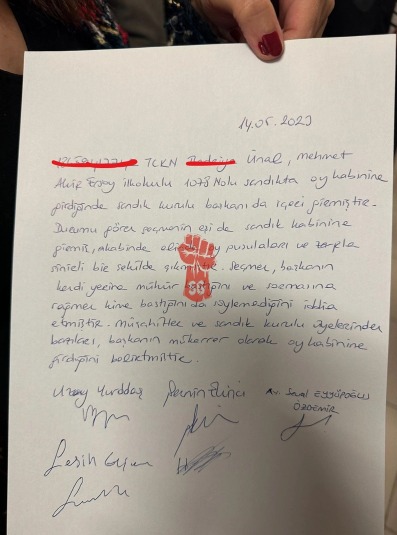 14.05.2023
TCKN Ünal, Mehmet
Akif Ersoy ilkokulu 1078 Nolu sandıkta oy kabinine
girdiğinde sandık kurulu başkanı da içeri girmiştir.
Durumu gören seçmenin eşi de sandık kabinine
girmiş, akabinde oy pusulaları ve zarfla
sinirli bir şekilde çıkmıştır. Seçmen, başkanın
kendi yerine mühür bastığını ve sormasına
rağmen kime bastığını da söylemediğini iddia
etmiştir. Müşahitler ve sandık kurulu üyelerinden
bazıları, başkanın mükerrer olarak oy kabinine
girdiğini belirtmiştir.
Uzay Yurddaş Av.
ÖZDEMİR